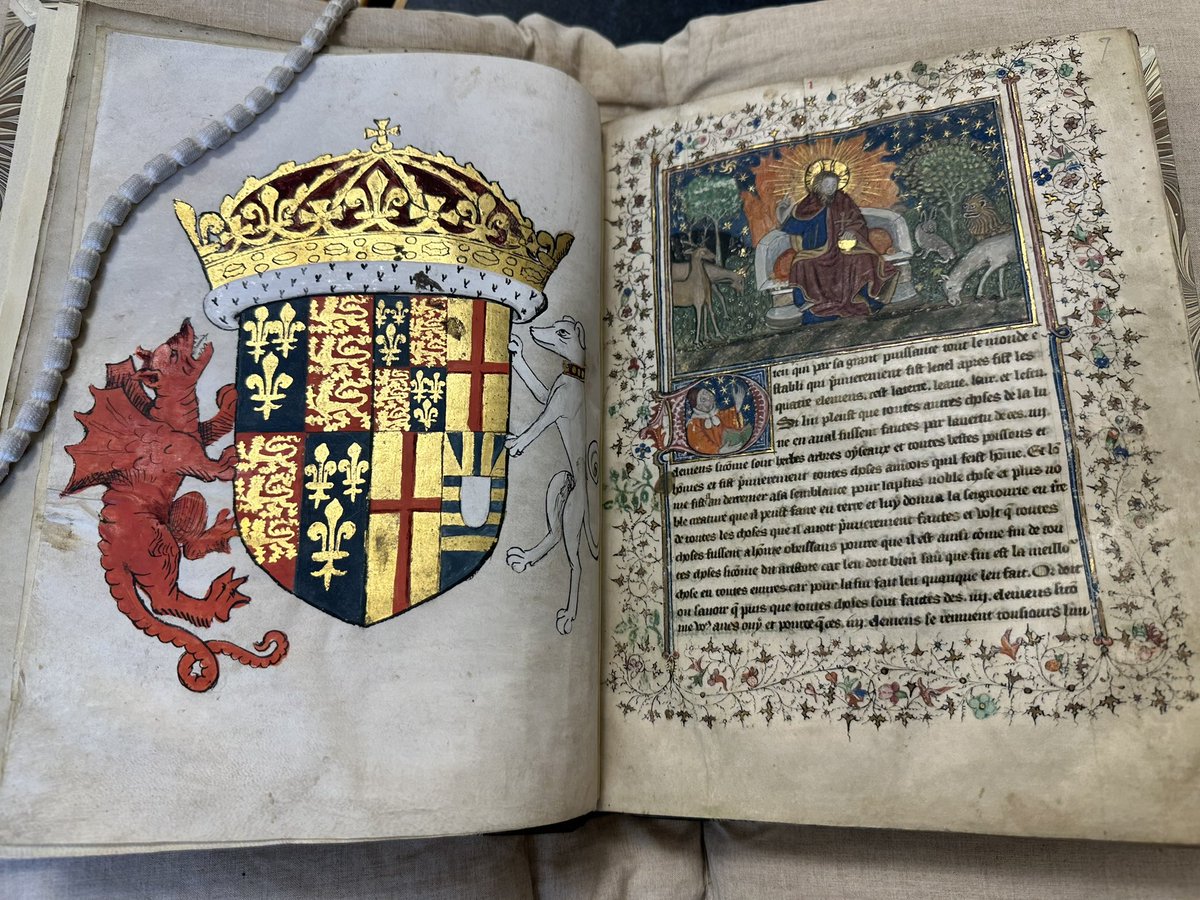 7
ieu qui par sa grant puissance tout le monde e
stabli qui p̃mierement fist le ciel apres fist les
quatre elemens, cest la terre, leaue, lair, et le feu
Si lui pleust que toutes autres choses de la lu
ne en aual fussent faites par la uertu de ces .iiij.
elemens sicōme sont herbes arbres oyseaux et toutes bestes poissons et
hōmes et fist p̃mierement toutes choses aincois quil feist hōme. Et
me fist au derrenier a sa semblance pour la plus noble chose et plus no
ble creature que il peust faire en terre et luy donna la seignourie en
de toutes les choses que il auoit p̃mierement faites et volt q̄ toutes
choses fussent a hōme obeissans pource que il est aussi cōme fin de tou
tes choses sicōme dit car len doit bien sauoir que fin est la meillo
chose en toutes euures car pour la fin fait len quanque len fait. Or doit
on sauoir q̄ puis que toutes choses sont faites des .iiij. elemens sicō
me vo⁹ aues ouy et pource q̄ ces .iiij. elemens se tousiours lun